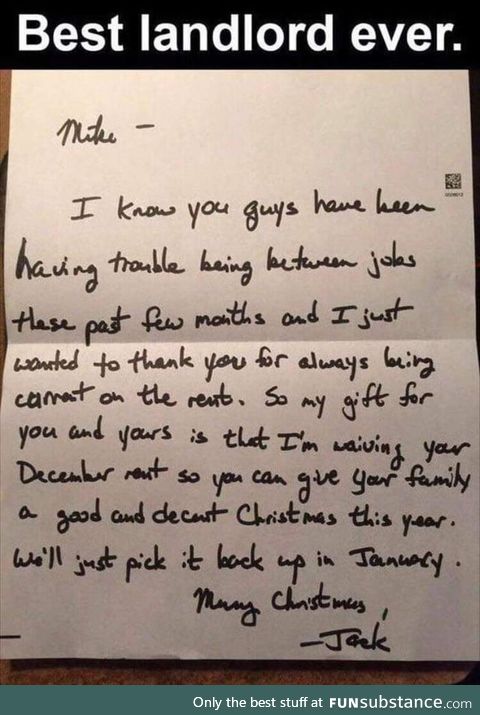 Best landlord ever.
Mike —
I know you guys have been
having trouble being between jobs
these past few months and I just
wanted to thank you for always being
current on the rent. So my gift for
you and yours is that I'm waiving your
December rent so you can give your family
a good and decent Christmas this year.
We'll just pick it back up in January.
Merry Christmas,
—Jack
Only the best stuff at FUNsubstance.com